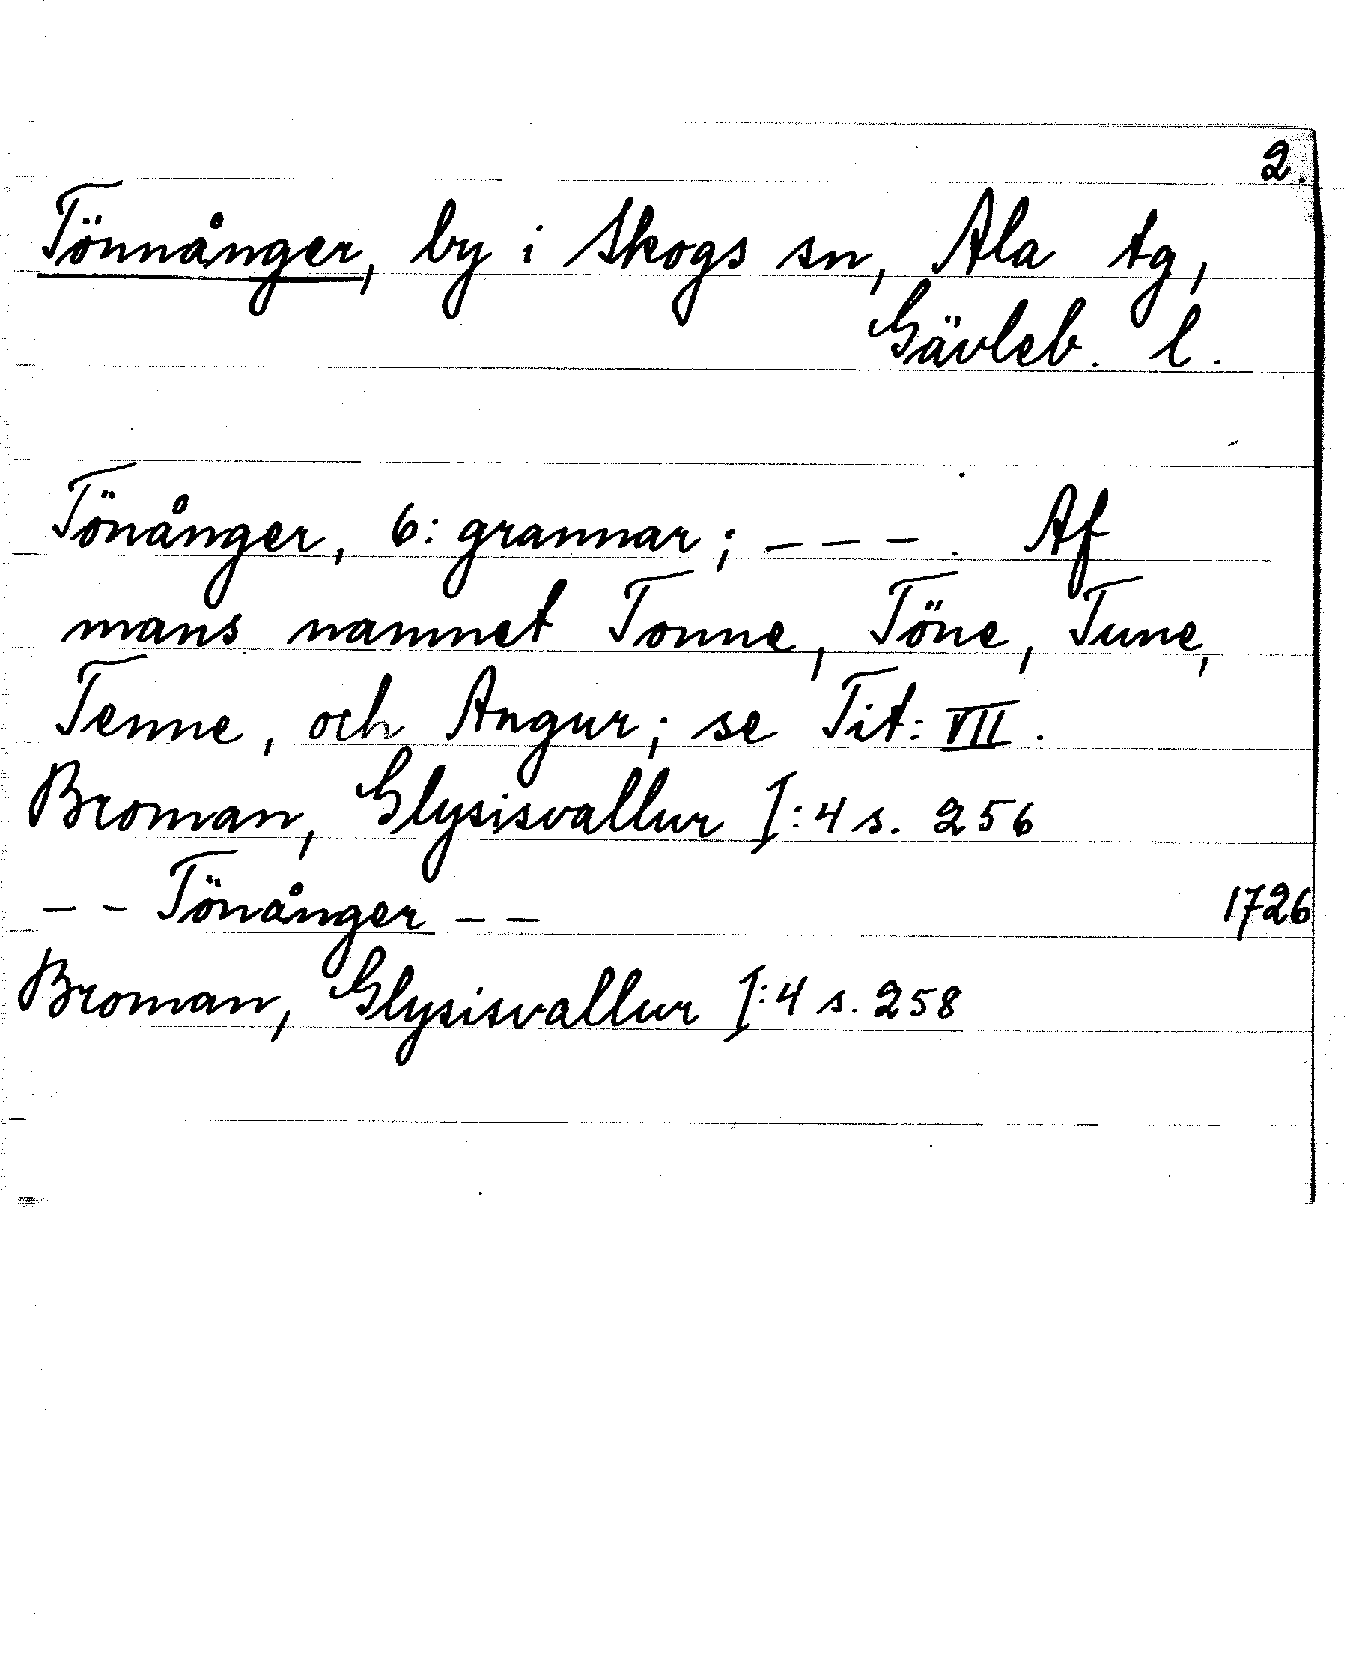 2.
Tönnånger, by i Skogs sn, Ala tg,
Gävleb. l.
Tönånger, 6: grannar; – – – . Af
mans namnet Tonne, Töne, Tune,
Tenne, och Angur; se Tit: VII.
Broman, Glysisvallur I:4 s. 256
– – Tönånger – – 1726
Broman, Glysisvallur I:4 s. 258